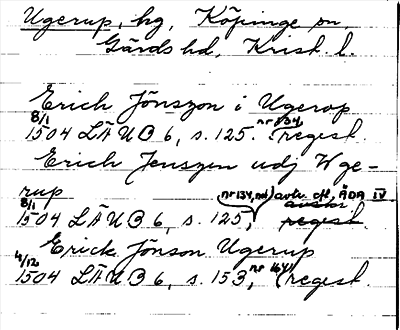 Ugerup, hg, Köpinge sn,
Gärds hd, Krist. l.
Erich Jönszon i Ugerop
8/1 1504 LÄUB 6, s. 125. nr 134 regest.
Erich Jenszen udj Wge-
rup
8/1 1504 LÄUB 6, s. 125, nr 134, avtr. eft. ÄDA IV regest.
Erick Jönson Ugerup
4/12 1504 LÄUB 6, s. 153, nr 164 regest.